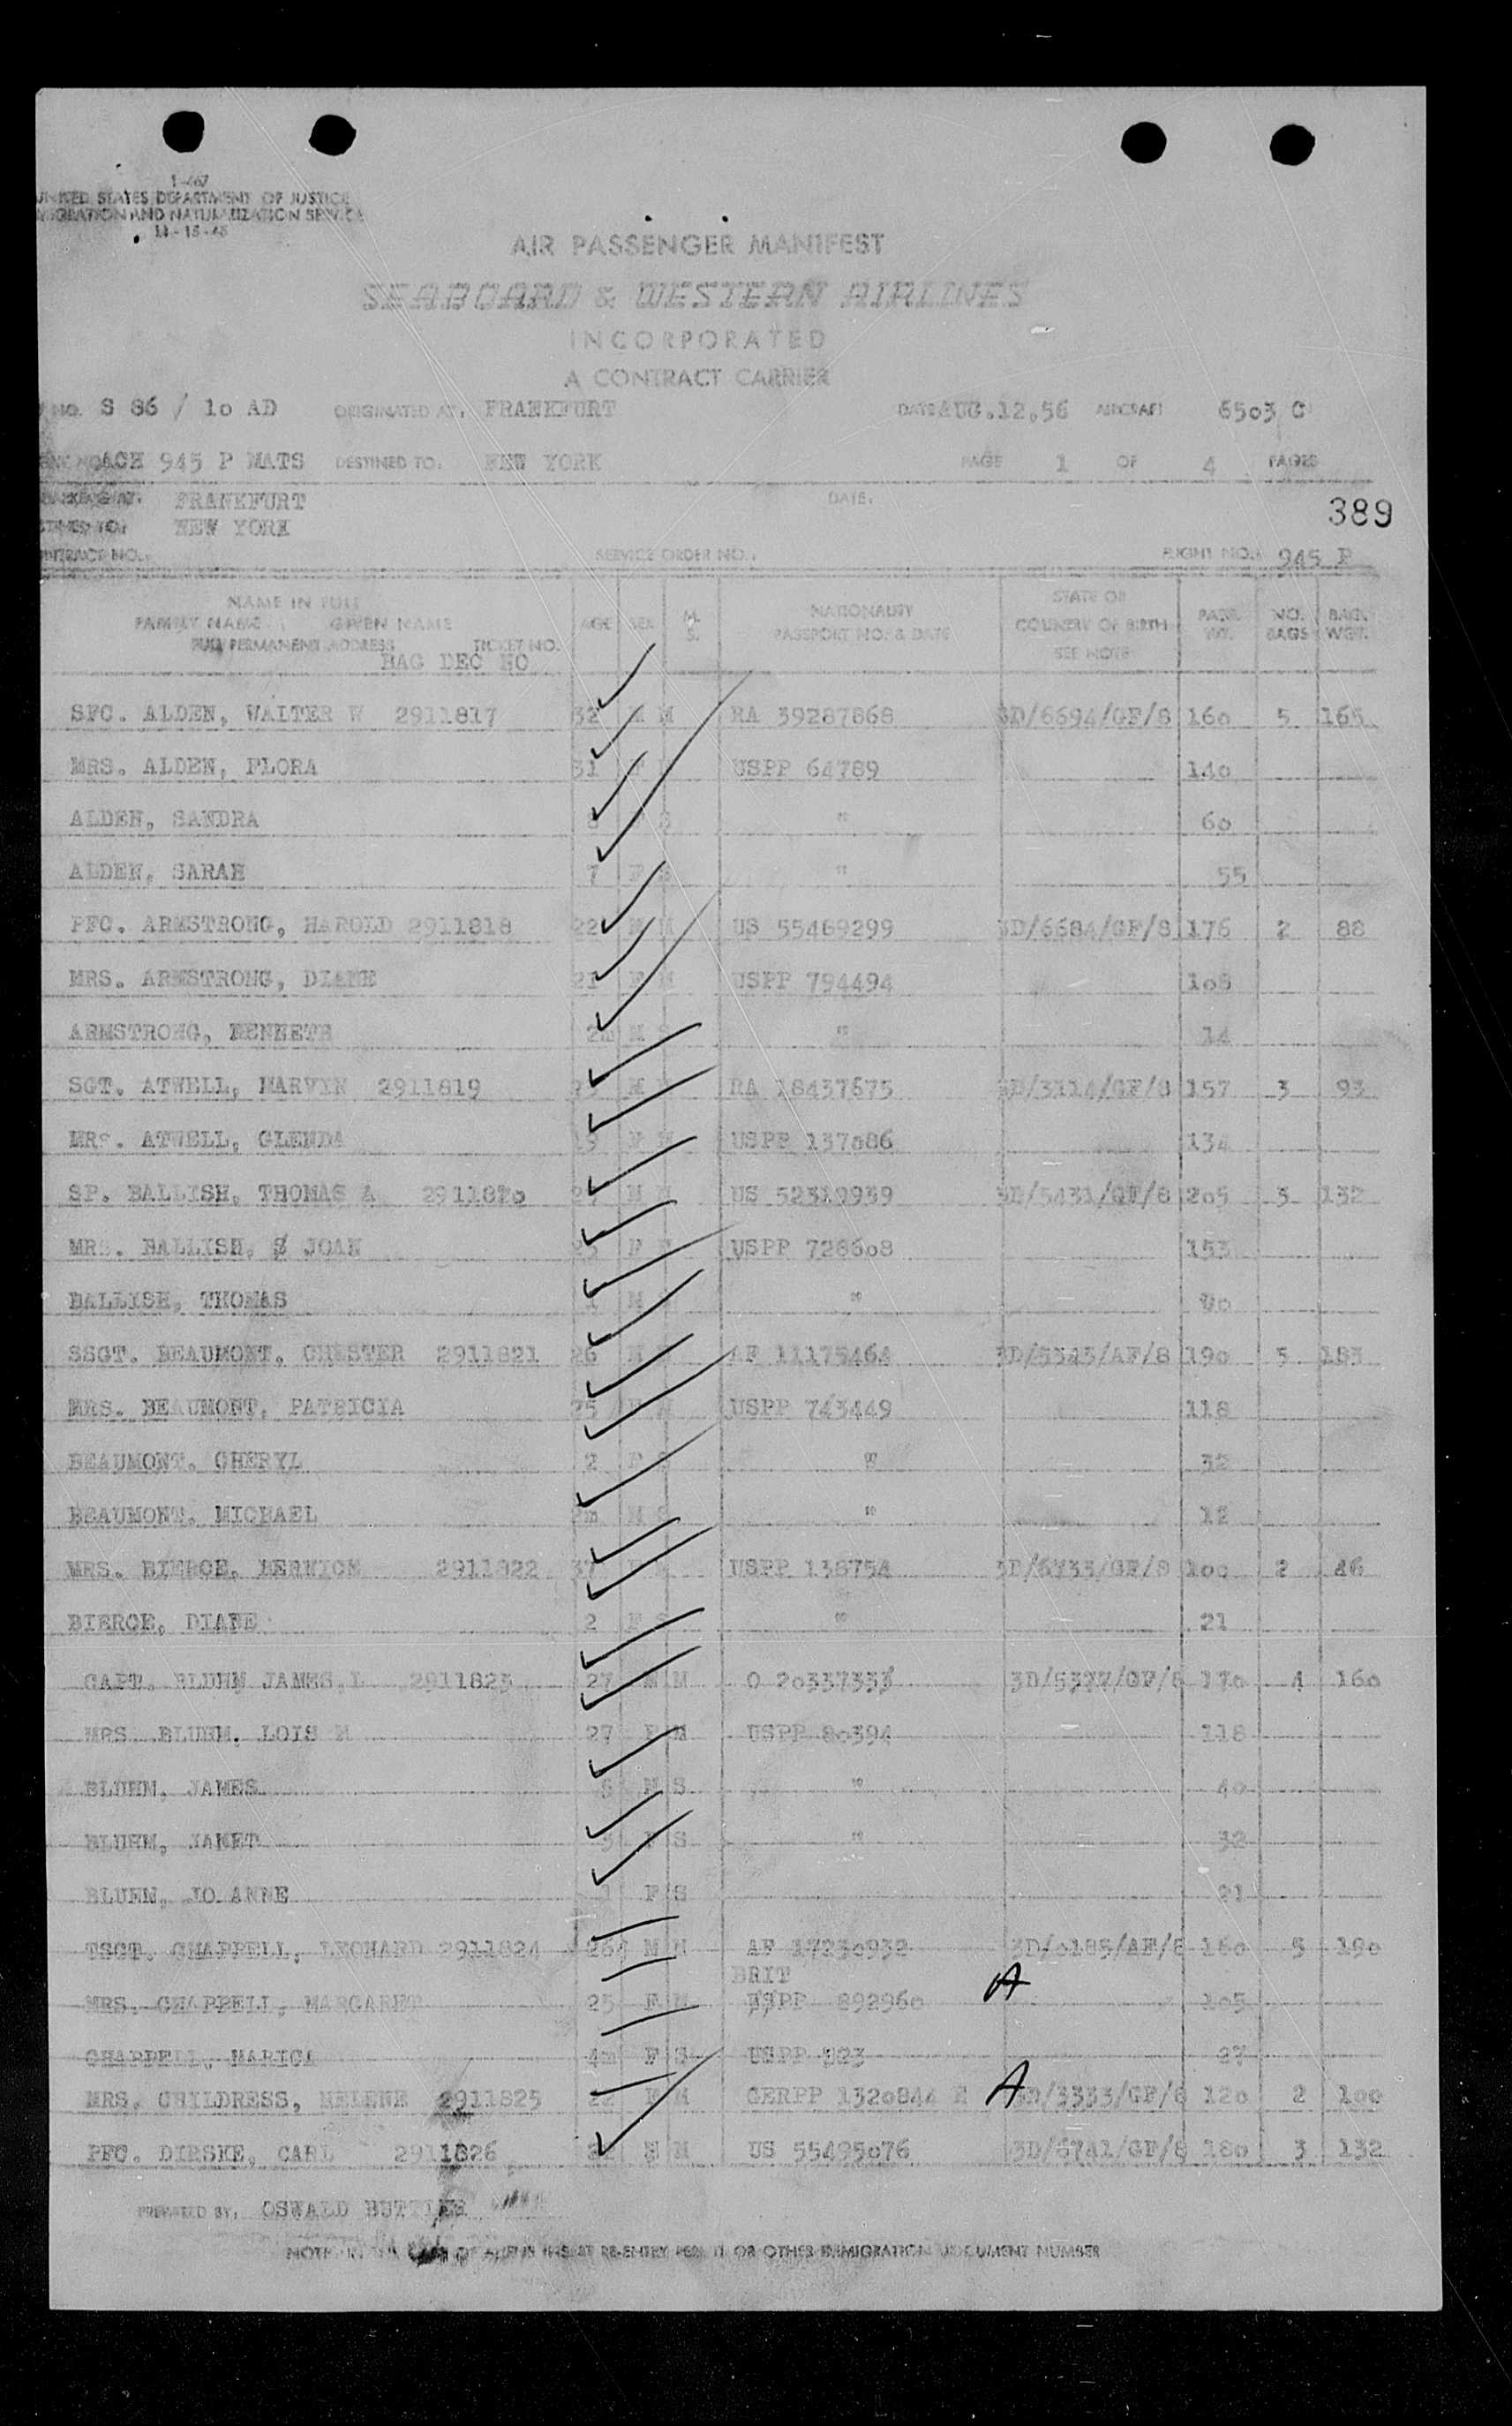 I-467
UNITED STATES DEPARTMENT OF JUSTICE
IMMIGRATION AND NATURALIZATION SERVICE
AIR PASSENGER MANIFEST
SEABOARD & WESTERN AIRLINES
INCORPORATED
A CONTRACT CARRIER
NO. S 86 / 10 AD ORIGINATED AT: FRANKFURT DATE AUG.12.56 AIRCRAFT 6503 C
ACH 945 P MATS DESTINED TO: NEW YORK PAGE 1 OF 4 PAGES
FRANKFURT DATE:
389
NEW YORK
CONTRACT NO. SERVICE ORDER NO. FLIGHT NO. 945 P
NAME IN FULL
FAMILY NAME GIVEN NAME AGE SEX M. S. NATIONALITY PASSPORT NO. & DATE STATE OR COUNTRY OF BIRTH SEE NOTE PASS. WT. NO. BAGS BAG. WGT.
FULL PERMANENT ADDRESS TICKET NO.
BAG DEC NO
SFC. ALDEN, WALTER W 2911817 32 M M RA 39287868 3D/6694/GF/8 160 5 165
MRS. ALDEN, FLORA 31 F USPP 64789 140
ALDEN, SANDRA S " 60
ALDEN, SARAH 7 F S " 55
PFC. ARMSTRONG, HAROLD 2911818 22 M M US 55489299 3D/6684/GF/8 176 2 88
MRS. ARMSTRONG, DIANE 21 F M USPP 794494 108
ARMSTRONG, KENNETH 2m M " 14
SGT. ATWELL, MARVIN 2911819 M RA 18437675 3D/3114/GF/8 157 3 93
MRS. ATWELL, GLENDA 19 F M USPP 137086 134
SP. BALLISH, THOMAS A 2911820 M US 52319939 3D/5431/GF/8 205 3 132
MRS. BALLISH, JOAN 23 F USPP 728608 153
BALLISH, THOMAS 1 M "
SSGT. BEAUMONT, CHESTER 2911821 26 M AF 11175464 3D/5343/AF/8 190 5 183
MRS. BEAUMONT, PATRICIA 25 M USPP 743449 118
BEAUMONT, CHERYL 2 F S " 32
BEAUMONT, MICHAEL 2m M S " 12
MRS. BIERCE, BERNICE 2911822 37 USPP 138754 3D/6733/GF/8 100 2 46
BIERCE, DIANE 2 F S " 21
CAPT. BLUHM JAMES L 2911823 27 M M O 2033733 3D/5377/GF/8 170 4 160
MRS BLUHM, LOIS M 27 F M USPP 80394 118
BLUHM, JAMES M S " 40
BLUHM, JANET 3 F S " 32
BLUHM, JO ANNE 1 F S 21
TSGT. CHAPPELL, LEONARD 2911824 26 M M AF 17230932 3D/0185/AF/8 160 5 190
BRIT
MRS. CHAPPELL, MARGARET 25 F M PP 892960 A 105
CHAPPELL, MARICA 4m F S USPP 923 27
MRS. CHILDRESS, HELENE 2911825 22 F M GERPP 1320844 A 3D/3333/GF/8 120 2 100
PFC. DIRSKE, CARL 2911826 22 M M US 55495076 3D/6741/GF/8 180 3 132
PREPARED BY: OSWALD
OF ALIENS INSERT RE-ENTRY PERMIT OR OTHER IMMIGRATION DOCUMENT NUMBER